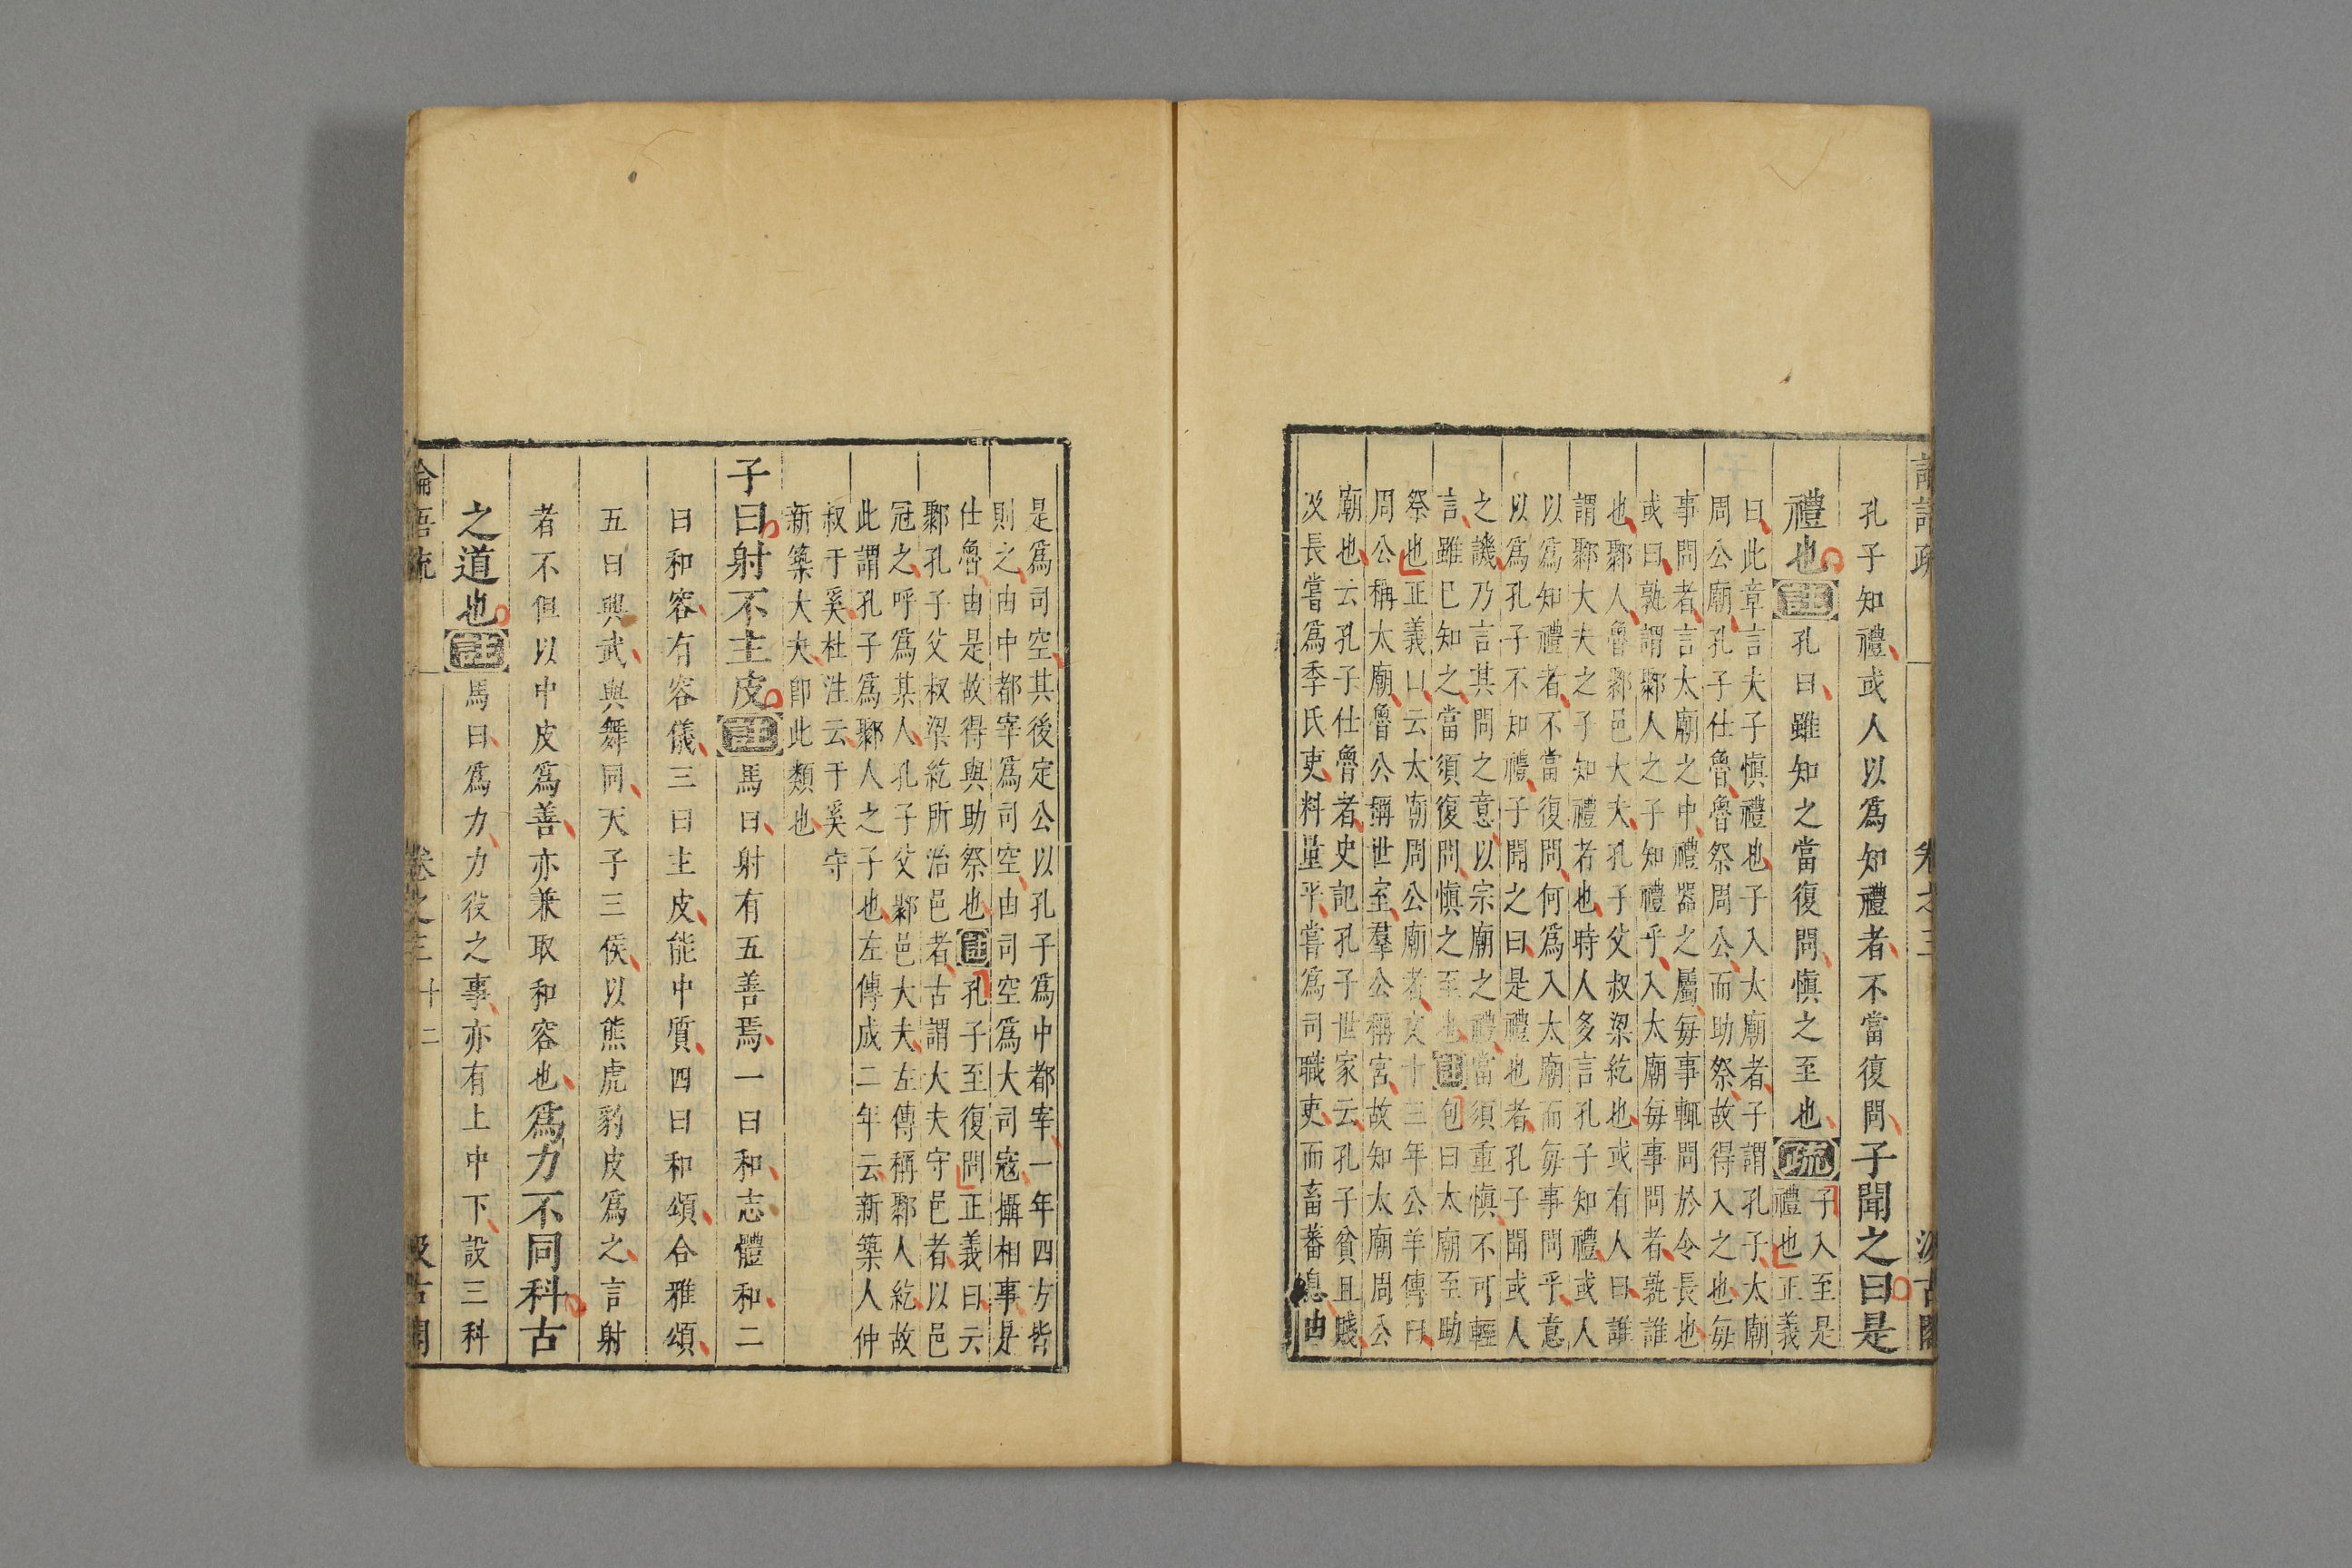 孔子知禮或人以爲知禮者不當復問子聞之曰是
禮也註孔曰雖知之當復問慎之至也疏子入至是
禮也正義
曰此章言夫子愼禮也子入太廟者子謂孔子太廟
周公廟孔子仕魯魯祭周公而助祭故得入之也每
事問者言太廟之中禮器之屬每事輒問於令長也
或曰孰謂鄹人之子知禮乎入太廟每事問者孰誰
也鄹人魯鄹邑大夫孔子父叔梁紇也或有人曰誰
謂鄹大夫之子知禮者也時人多言孔子知禮或人
以爲知禮者不當復問何爲入太廟而每事問乎意
以爲孔子不知禮子聞之曰是禮也者孔子聞或人
之譏乃言其問之意以宗廟之禮當須重愼不可輕
言雖已知之當須復問愼之至也註包曰太廟至助
祭也正義曰云太廟周公廟者文十三年公羊傳曰
周公稱太廟魯公稱世室羣公稱宮故知太廟周公
廟也云孔子仕魯者史記孔子世家云孔子貧且賤
及長嘗爲季氏吏料量平嘗爲司職吏而畜蕃息由
是爲司空其後定公以孔子爲中都宰一年四方皆
則之由中都宰爲司空由司空爲大司寇攝相事是
仕魯由是故得與助祭也註孔子至復問正義曰云
鄹孔子父叔梁紇所治邑者古謂大夫守邑者以邑
冠之呼爲某人孔子父鄹邑大夫左傳稱鄹人紇故
此謂孔子爲鄹人之子也左傳成二年云新築人仲
叔于奚杜注云于奚守
新築大夫即此類也
子曰射不主皮註馬曰射有五善焉一曰和志體和二
曰和容有容儀三曰主皮能中質四曰和頌合雅頌
五曰興武與舞同天子三侯以熊虎豹皮爲之言射
者不但以中皮爲善亦兼取和容也爲力不同科古
之道也註馬曰爲力力役之事亦有上中下設三科
論語疏 卷之三 十二 汲古閣